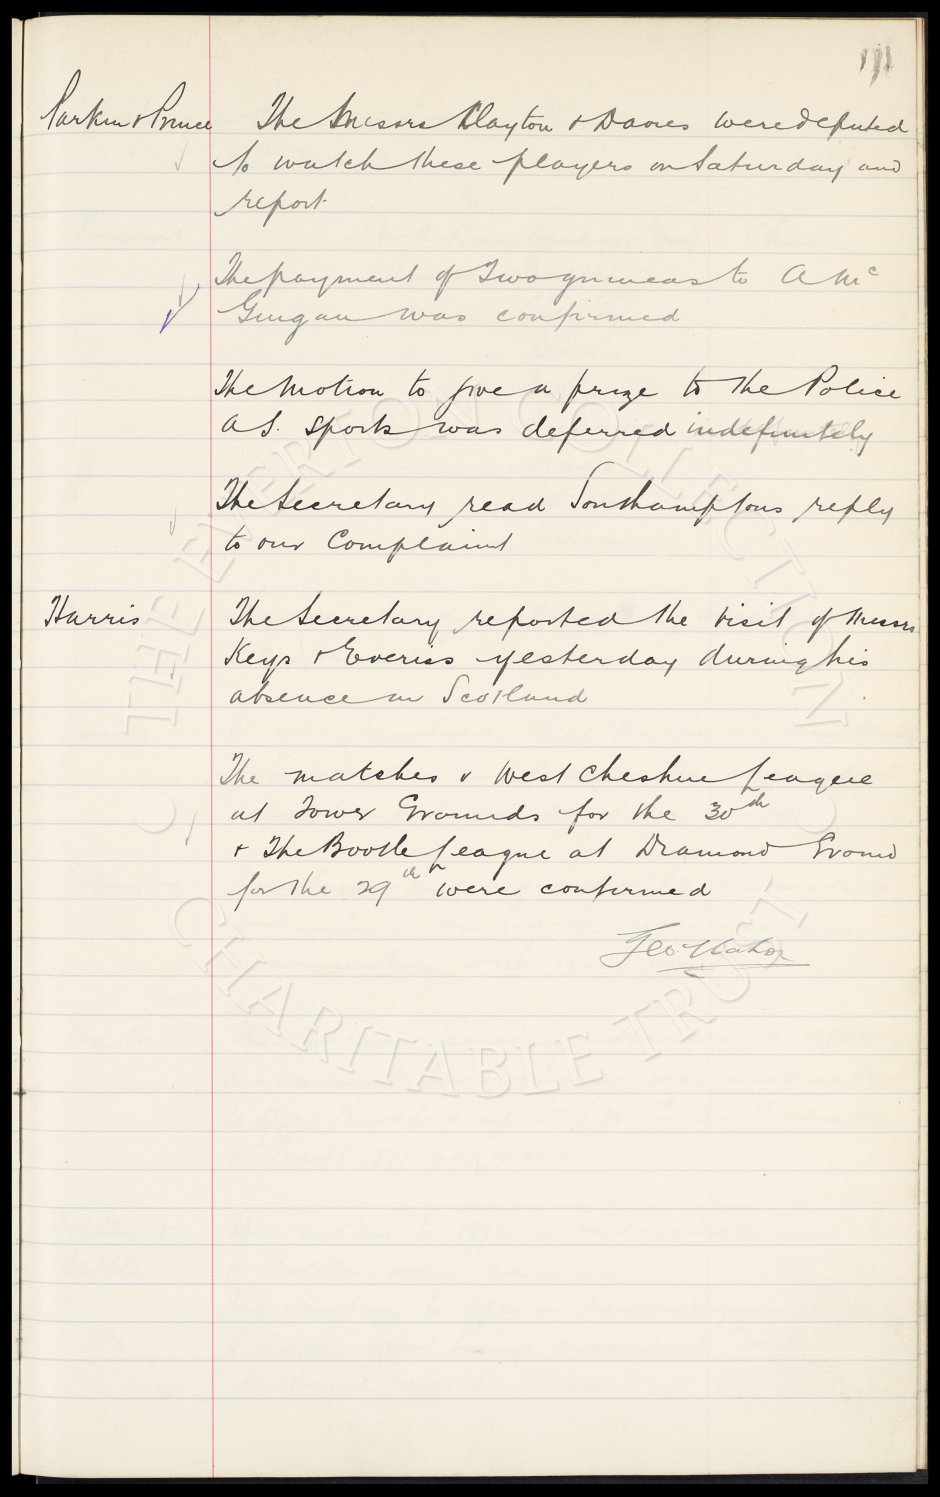 111
Parkin & Prince The Messrs Clayton & Davies were deputed
to watch these players on Saturday and
report.
The payment of Two guineas to A Mc
Gingan was confirmed
The motion to give a prize to the Police
A S. Sports was deferred indefinitely
The Secretary read Southamptons reply
to our Complaint
Harris The Secretary reported the visit of Messrs
Keys & Everiss yesterday during his
absence in Scotland
The matches & West Cheshire League
at Tower Grounds for the 30th
& The Bootle League at Diamond Ground
for the 29th were confirmed
Geo Mahon
THE EVERTON COLLECTION
CHARITABLE TRUST